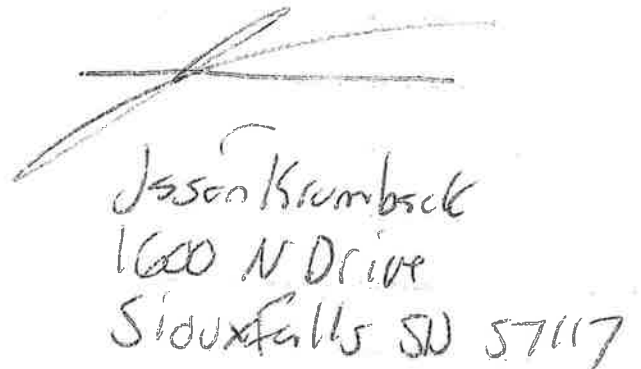 Jason Krumback
1600 N Drive
Sioux Falls SD 57117